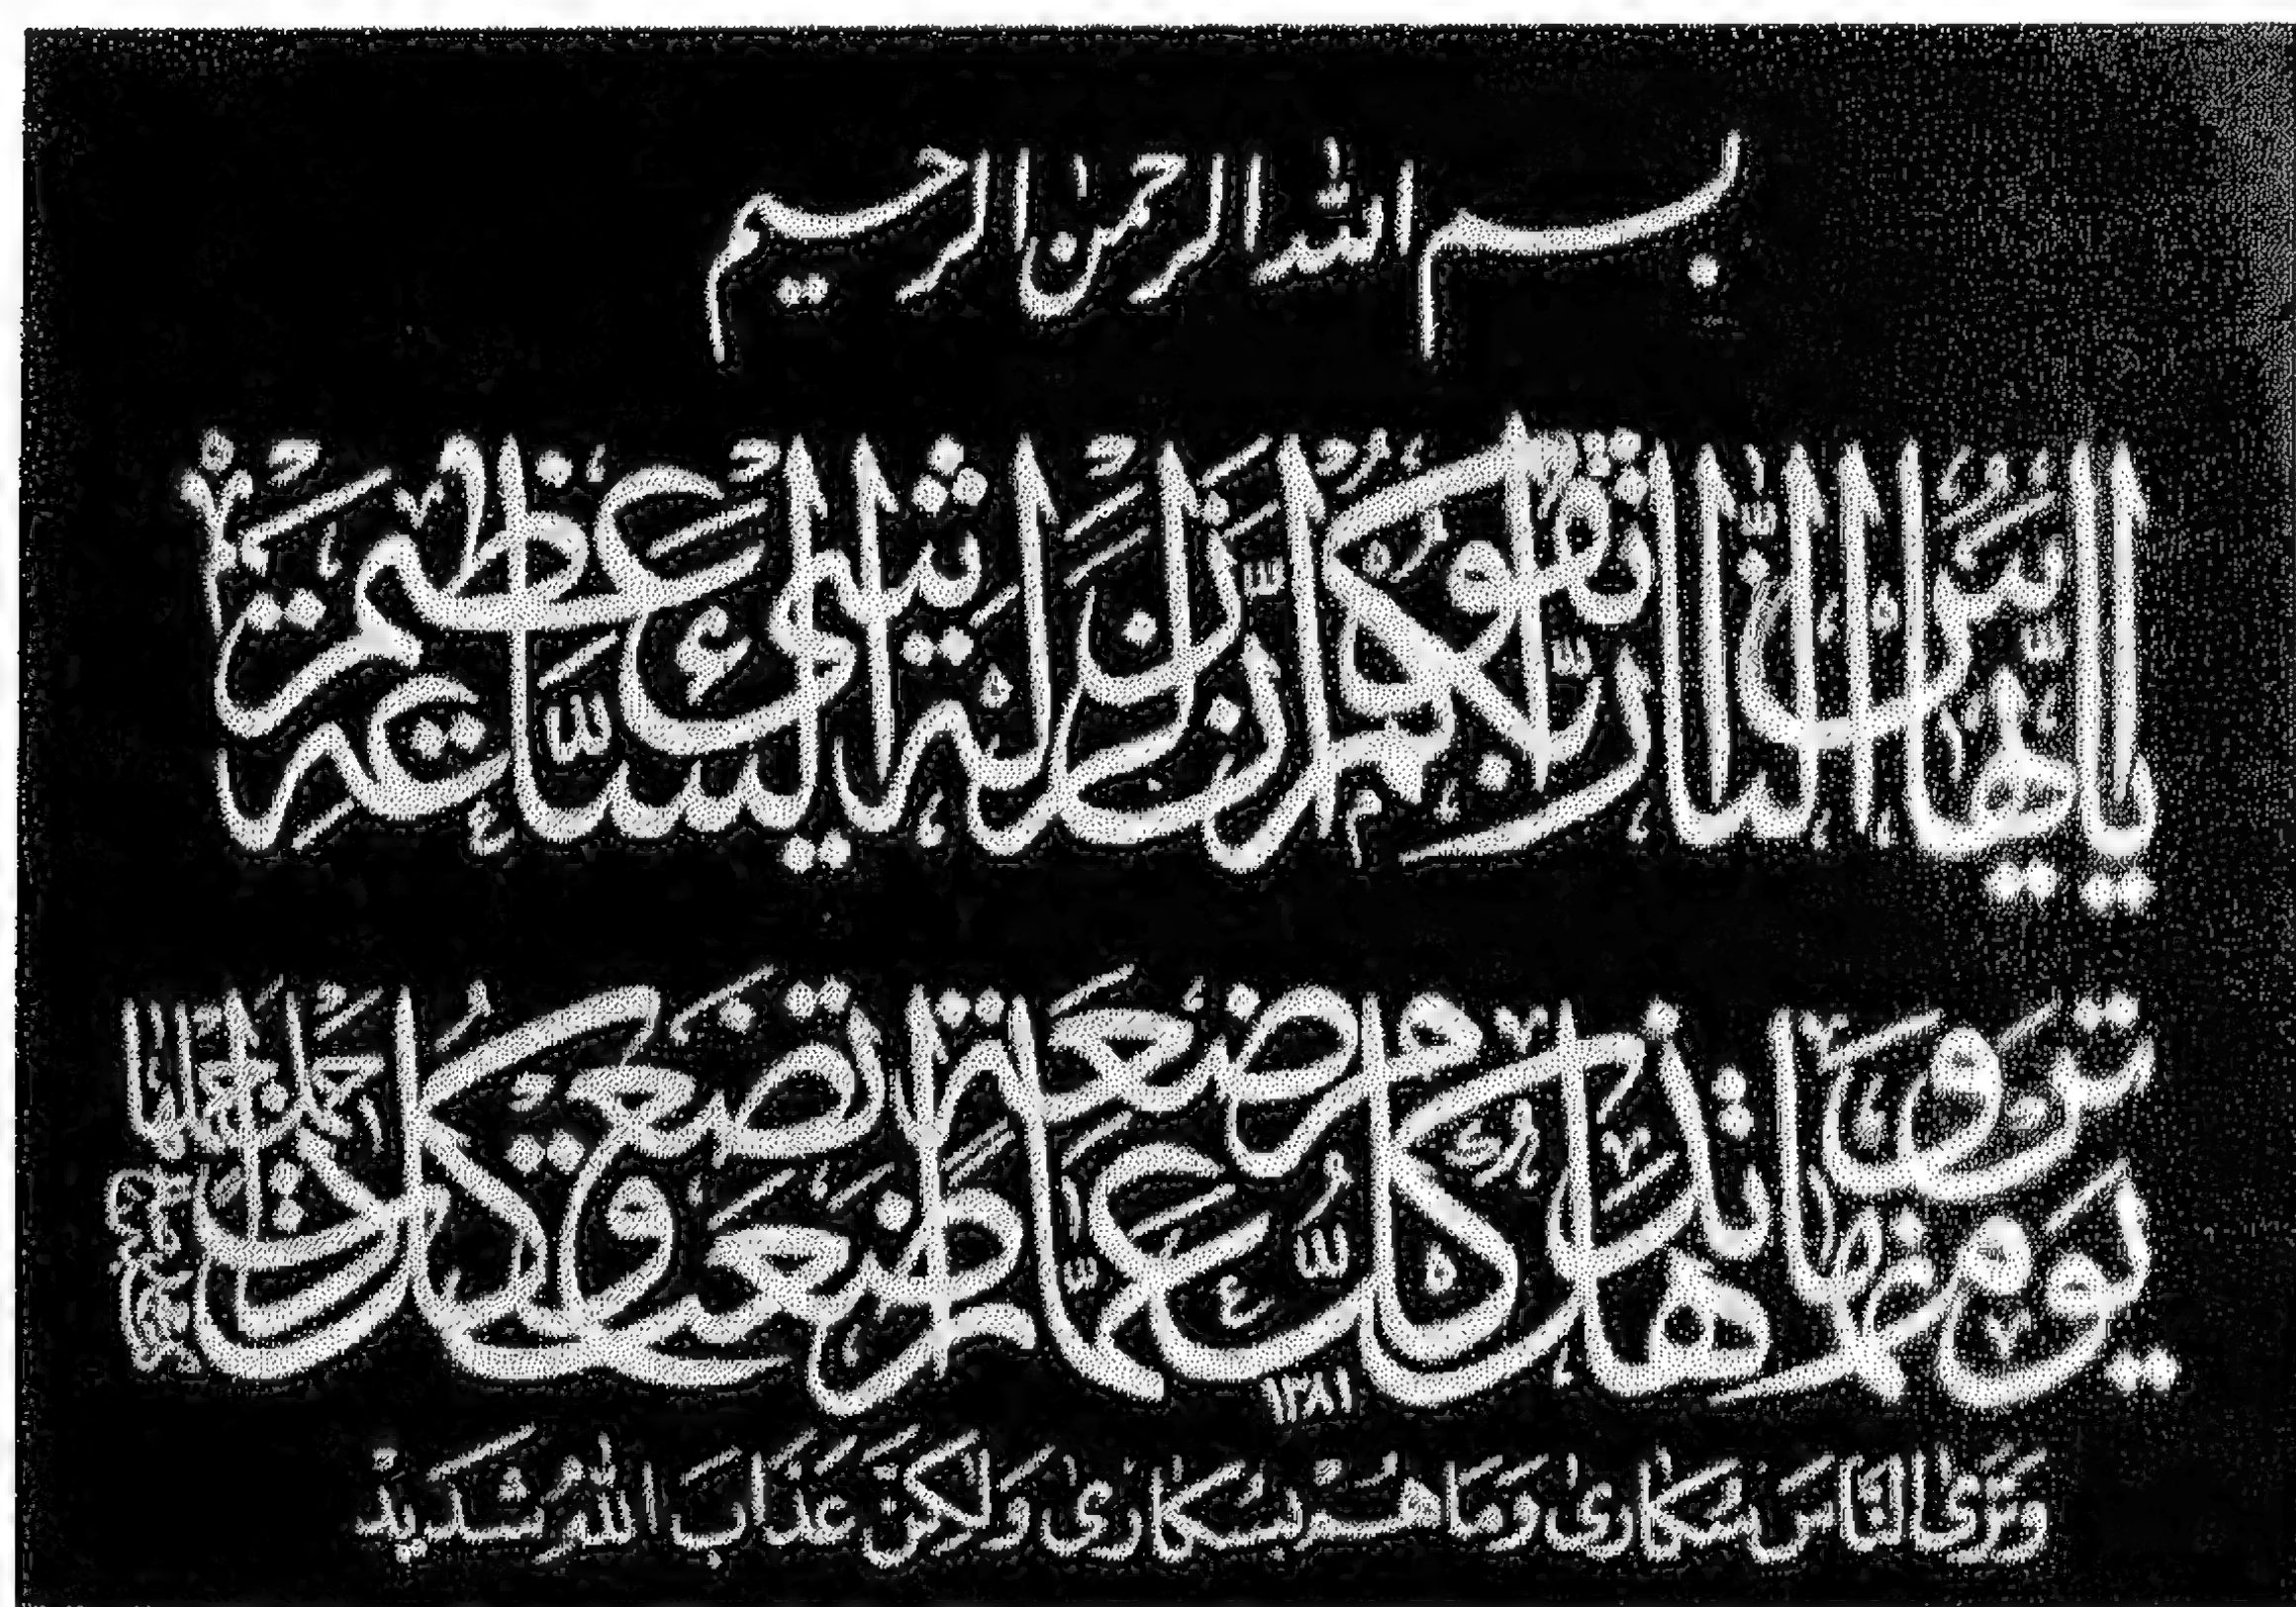 بسم الله الرحمن الرحيم
يا أيها الناس اتقوا ربكم إن زلزلة الساعة شيء عظيم
يوم ترونها تذهل كل مرضعة عما أرضعت وتضع كل ذات حمل حملها
١٣٨١
وترى الناس سكارى وما هم بسكارى ولكن عذاب الله شديد